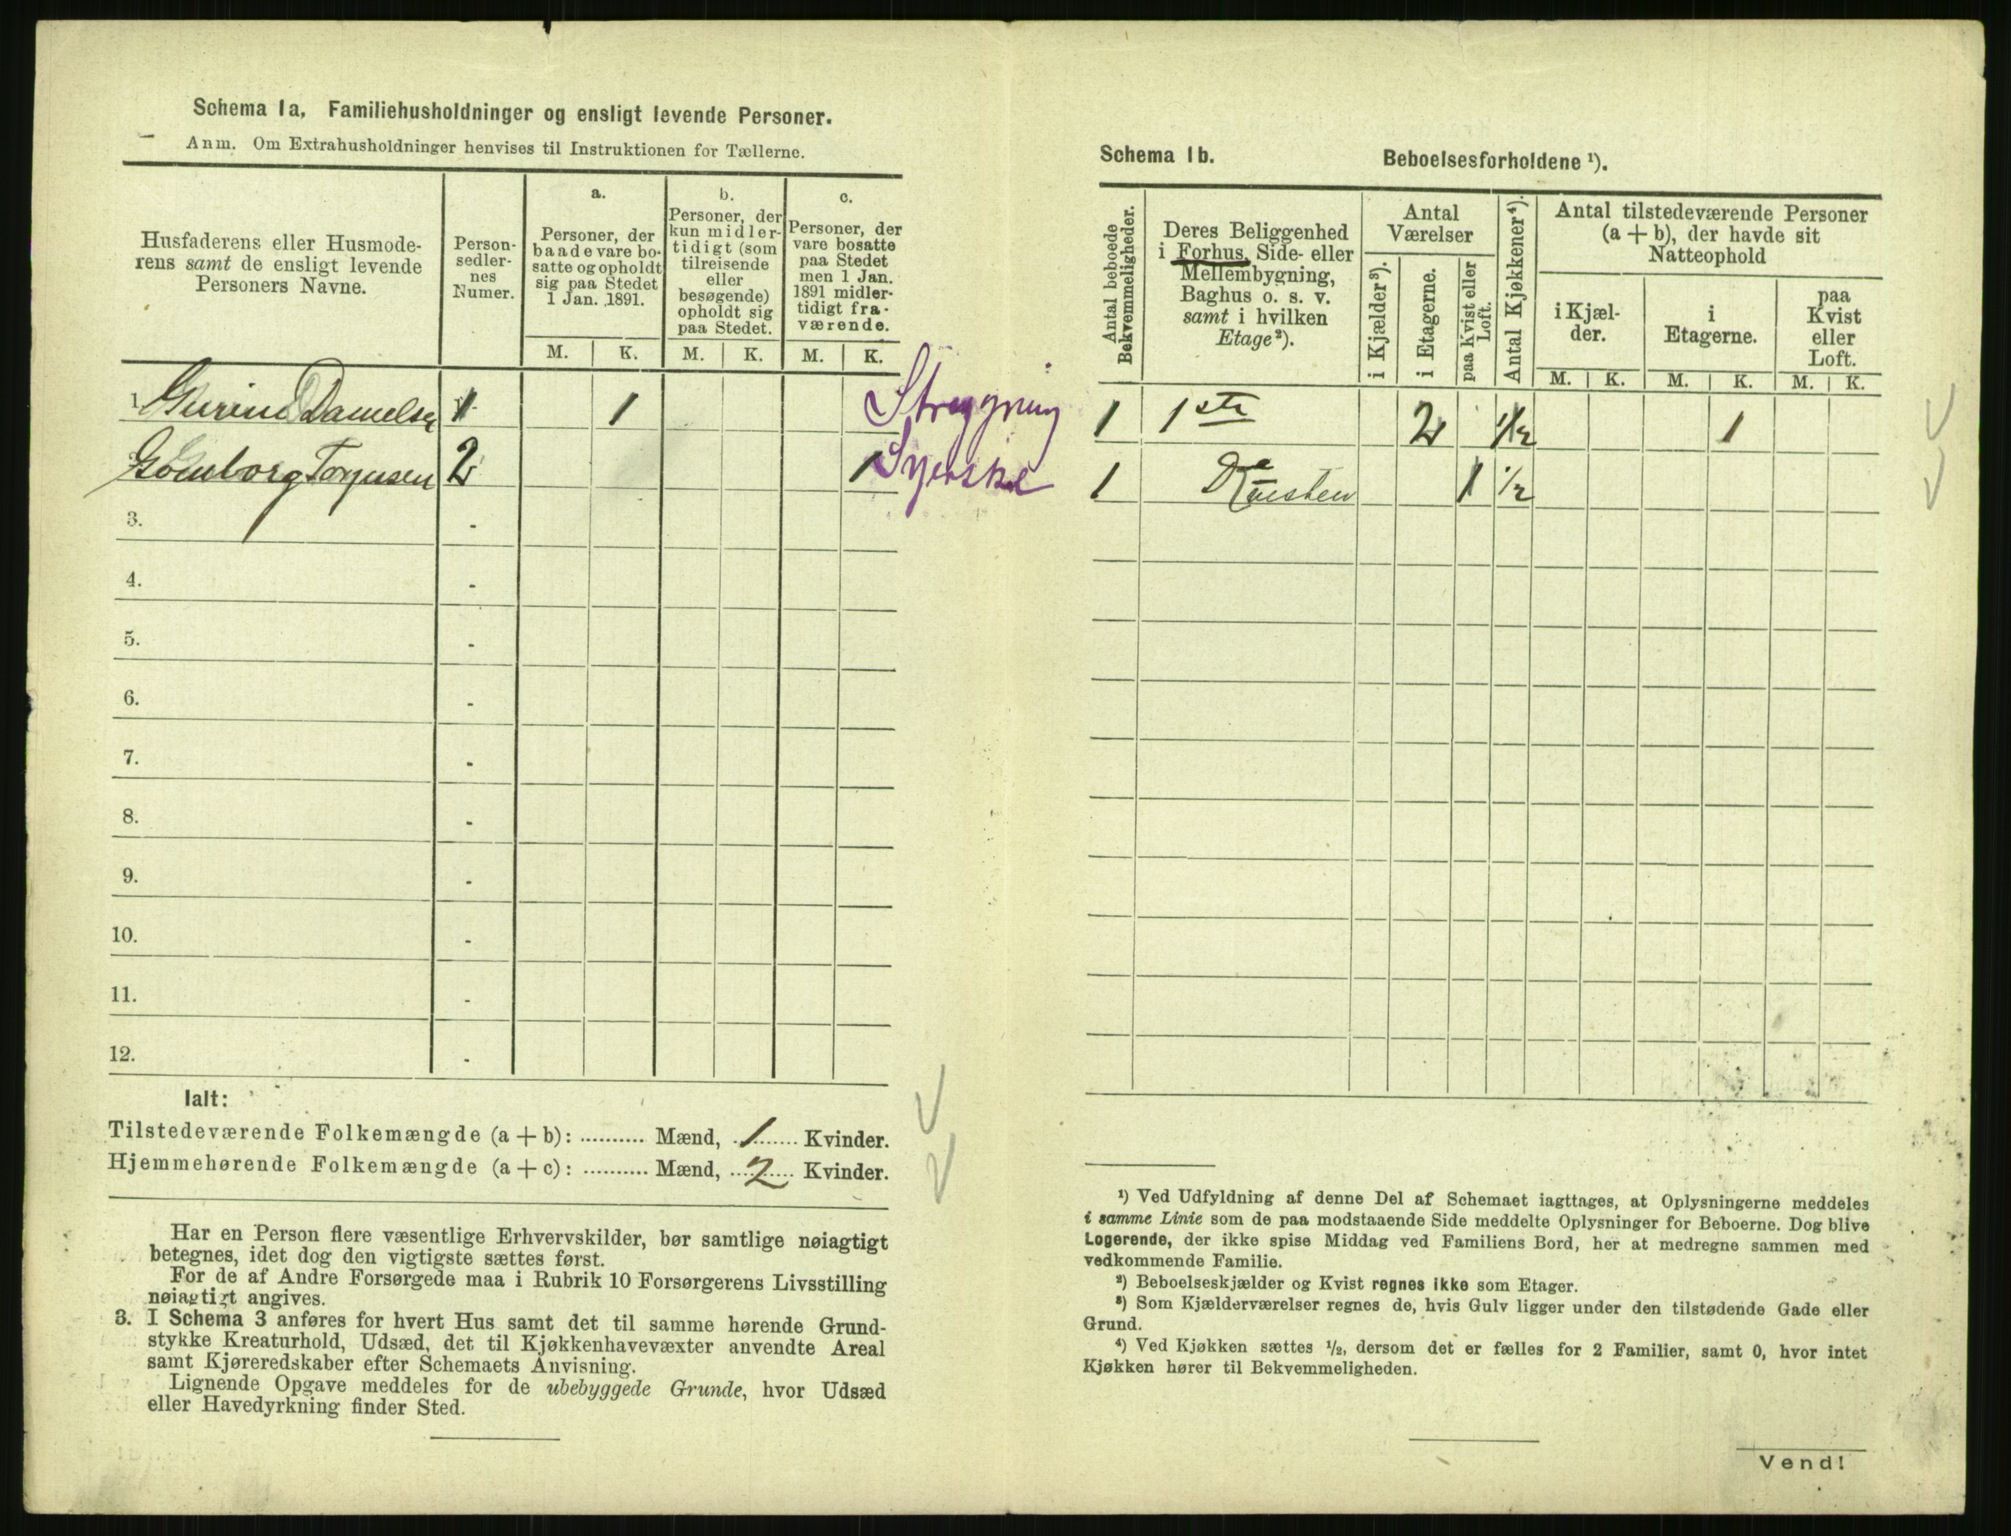 Schema 1a. Familiehusholdninger og ensligt levende Personer.
Anm. Om Extrahusholdninger henvises til Instruktionen for Tællerne.
Husfaderens eller Husmoderens samt de ensligt levende Personers Navne.
Personsedlernes Numer.
a.
Personer, der baade vare bosatte og opholdt sig paa Stedet 1 Jan. 1891.
b.
Personer, der kun midlertidigt (som tilreisende eller besøgende) opholdt sig paa Stedet.
c.
Personer, der vare bosatte paa Stedet men 1 Jan. 1891 midlertidigt fraværende.
M. K. M. K. M. K.
1. Danielsen 1 1 Strygning
Torjusen 2 1 Syerske
3. -
4. -
5. -
6. -
7. -
8. -
9. -
10. -
11. -
12. -
Ialt:
Tilstedeværende Folkemængde (a + b): .......... Mænd, 1 Kvinder.
Hjemmehørende Folkemængde (a + c): .......... Mænd, 2 Kvinder.
Har en Person flere væsentlige Erhvervskilder, bør samtlige nøiagtigt
betegnes, idet dog den vigtigste sættes først.
For de af Andre Forsørgede maa i Rubrik 10 Forsørgerens Livsstilling
nøiagtigt angives.
3. I Schema 3 anføres for hvert Hus samt det til samme hørende Grund-
stykke Kreaturhold, Udsæd, det til Kjøkkenhavevæxter anvendte Areal
samt Kjøreredskaber efter Schemaets Anvisning.
Lignende Opgave meddeles for de ubebyggede Grunde, hvor Udsæd
eller Havedyrkning finder Sted.
Schema 1b. Beboelsesforholdene ¹).
Antal beboede Bekvemmeligheder.
Deres Beliggenhed i Forhus, Side- eller Mellembygning, Baghus o. s. v. samt i hvilken Etage²).
Antal Værelser
i Kjælder³).
i Etagerne.
paa Kvist eller Loft.
Antal Kjøkkener⁴).
Antal tilstedeværende Personer (a + b), der havde sit Natteophold
i Kjælder.
i Etagerne.
paa Kvist eller Loft.
M. K. M. K. M. K.
1 1ste 2 1/2 1
1 Kvisten 1 1/2
¹) Ved Udfyldning af denne Del af Schemaet iagttages, at Oplysningerne meddeles
i samme Linie som de paa modstaaende Side meddelte Oplysninger for Beboerne. Dog blive
Logerende, der ikke spise Middag ved Familiens Bord, her at medregne sammen med
vedkommende Familie.
²) Beboelseskjælder og Kvist regnes ikke som Etager.
³) Som Kjælderværelser regnes de, hvis Gulv ligger under den tilstødende Gade eller
Grund.
⁴) Ved Kjøkken sættes ½, dersom det er fælles for 2 Familier, samt 0, hvor intet
Kjøkken hører til Bekvemmeligheden.
Vend!